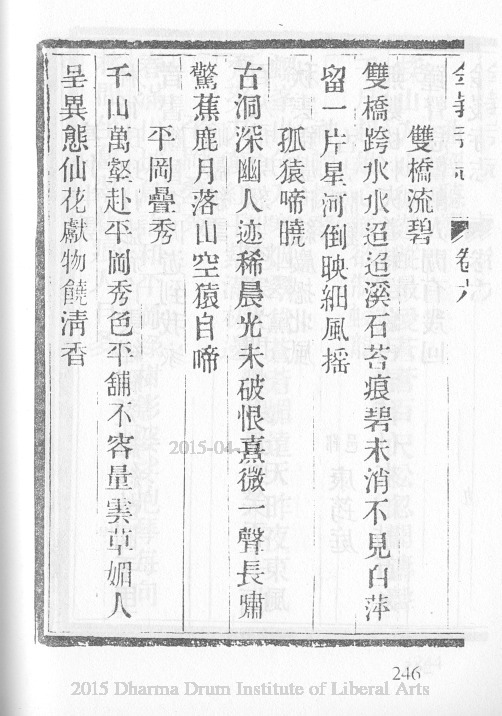 雙橋流碧
雙橋跨水水迢迢溪石苔痕碧未消不見白萍
留一片星河倒映細風搖
孤猿啼曉
古洞深幽人迹稀晨光未破恨熹微一聲長嘯
驚蕉鹿月落山空猿自啼
平岡疊秀
千山萬壑赴平岡秀色平舖不容量雲草媚人
呈異態仙花獻物饒清香
卷六
2015-04-
246
2015 Dharma Drum Institute of Liberal Arts